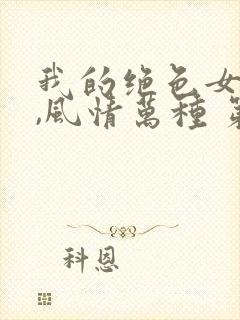 我的绝色女
,风情萬種 第
科恩